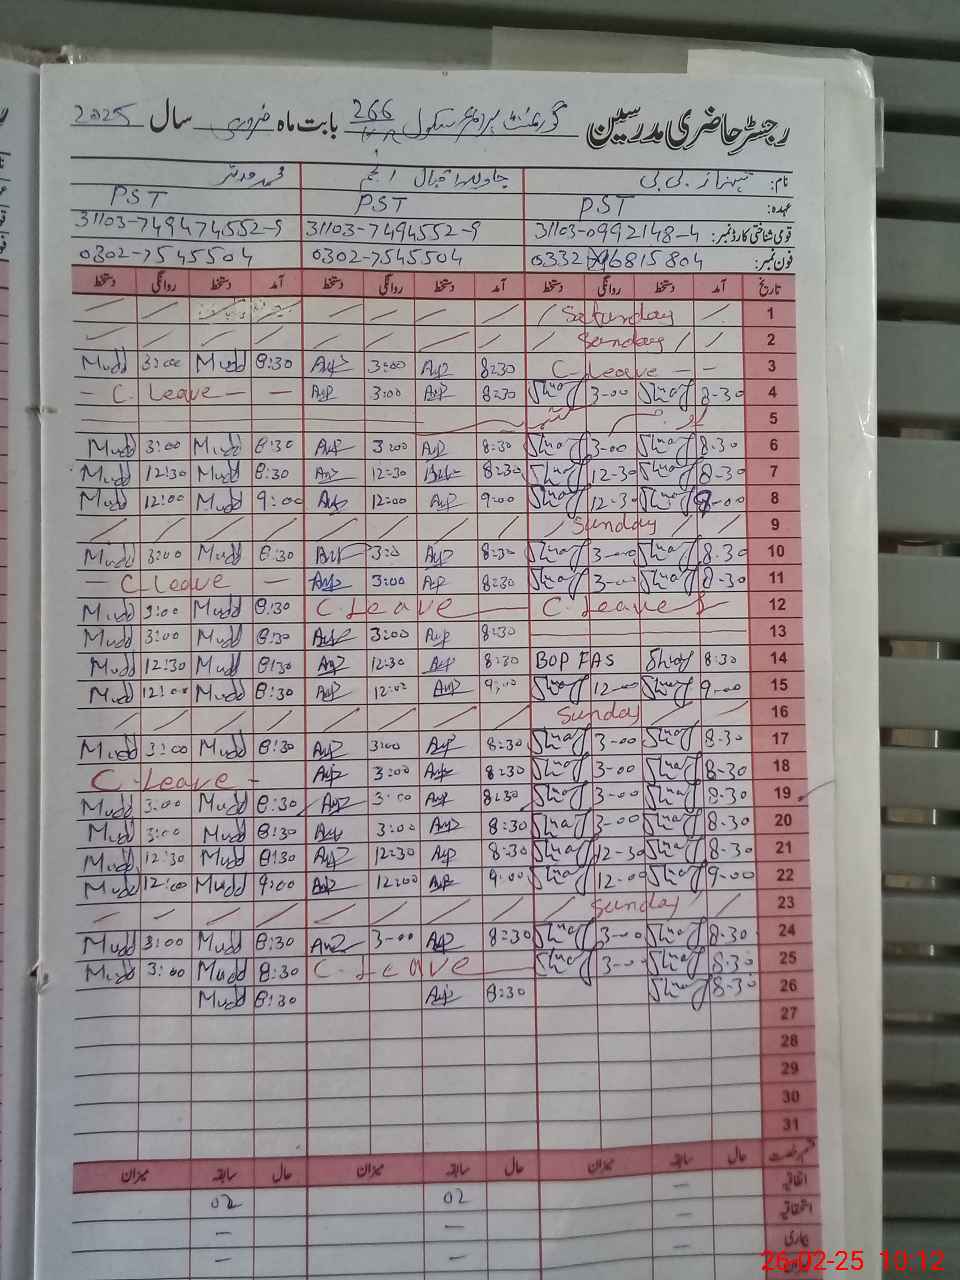 رجسٹر حاضری مدرسین گورنمنٹ پرائمری سکول 266 بابت ماہ فروری سال 2025
نام: شہناز بی بی جاوید اقبال انجم محمد مدثر
عہدہ: PST PST PST
قومی شناختی کارڈ نمبر: 31103-0992148-4 31103-7494552-9 31103-749474552-9
فون نمبر: 0332 6815804 0302-7545504 0302-7545504
تاریخ آمد دستخط روانگی دستخط آمد دستخط روانگی دستخط آمد دستخط روانگی دستخط
1 Saturday
2 Sunday
3 C-Leave - - 8:30 3:00 8:30 Mudd 3:00 Mudd
4 8-30 3-00 8:30 3:00 - C. Leave - -
5
6 8-30 3-00 8:30 3:00 8:30 Mudd 3:00 Mudd
7 8-30 12-30 8:30 12:30 8:30 Mudd 12:30 Mudd
8 9-00 12-30 9:00 12:00 9:00 Mudd 12:00 Mudd
9 Sunday
10 8-30 3-00 8:30 8:30 Mudd 3:00 Mudd
11 8-30 3-00 8:30 3:00 - C Leave -
12 C. Leave C. Leave 8:30 Mudd 3:00 Mudd
13 8:30 3:00 8:30 Mudd 3:00 Mudd
14 8:30 BOP FAS 8:30 12:30 8:30 Mudd 12:30 Mudd
15 9-00 12-00 9:00 12:00 8:30 Mudd 12:00 Mudd
16 Sunday
17 8-30 3-00 8:30 3:00 8:30 Mudd 3:00 Mudd
18 8-30 3-00 8:30 3:00 C-Leave -
19 8-30 3-00 8:30 3:00 8:30 Mudd 3:00 Mudd
20 8-30 3-00 8:30 3:00 8:30 Mudd 3:00 Mudd
21 8-30 12-30 8:30 12:30 8:30 Mudd 12:30 Mudd
22 9-00 12-00 9:00 12:00 9:00 Mudd 12:00 Mudd
23 Sunday
24 8-30 3-00 8:30 3-00 8:30 Mudd 3:00 Mudd
25 8-30 3-00 C. Leave 8:30 Mudd 3:00 Mudd
26 8-30 8:30 8:30 Mudd
27
28
29
30
31
حال سابقہ میزان حال سابقہ میزان حال سابقہ میزان
اتفاقیہ - 02 02
استحقاقیہ - - -
بیماری - - -
26-02-25 10:12